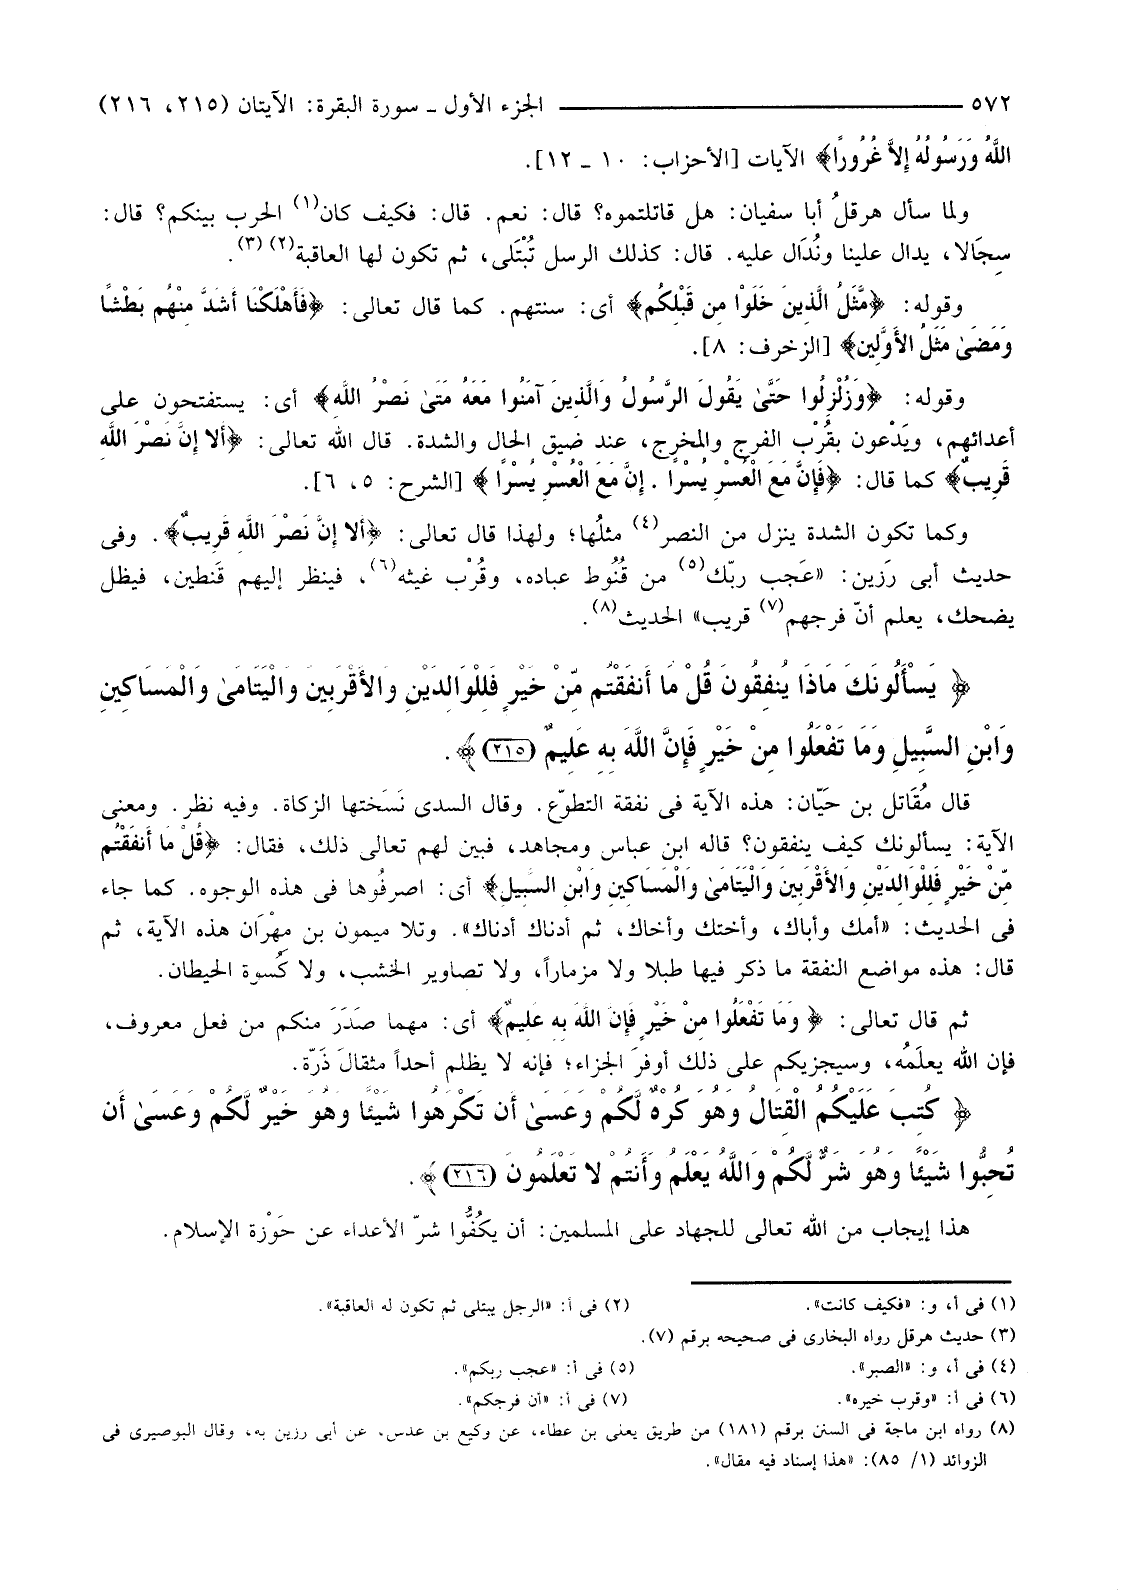 ٥٧٢ ــــــــــــــــ الجزء الأول ـ سورة البقرة: الآيتان (٢١٥، ٢١٦)
اللَّهُ وَرَسُولُهُ إِلاَّ غُرُورًا﴾ الآيات [الأحزاب: ١٠ ـ ١٢].
ولما سأل هرقلُ أبا سفيان: هل قاتلتموه؟ قال: نعم. قال: فكيف كان(١) الحرب بينكم؟ قال:
سِجَالا، يدال علينا ونُدَال عليه. قال: كذلك الرسل تُبْتَلى، ثم تكون لها العاقبة(٢) (٣).
وقوله: ﴿مَّثَلُ الَّذِينَ خَلَوْا مِن قَبْلِكُم﴾ أى: سنتهم. كما قال تعالى: ﴿فَأَهْلَكْنَا أَشَدَّ مِنْهُم بَطْشًا
وَمَضَىٰ مَثَلُ الأَوَّلِين﴾ [الزخرف: ٨].
وقوله: ﴿وَزُلْزِلُوا حَتَّىٰ يَقُولَ الرَّسُولُ وَالَّذِينَ آمَنُوا مَعَهُ مَتَىٰ نَصْرُ اللَّه﴾ أى: يستفتحون على
أعدائهم، ويَدْعون بقُرْب الفرج والمخرج، عند ضيق الحال والشدة. قال الله تعالى: ﴿أَلا إِنَّ نَصْرَ اللَّه
قَرِيبٌ﴾ كما قال: ﴿فَإِنَّ مَعَ الْعُسْرِ يُسْرًا . إِنَّ مَعَ الْعُسْرِ يُسْرًا ﴾ [الشرح: ٥، ٦].
وكما تكون الشدة ينزل من النصر(٤) مثلُها؛ ولهذا قال تعالى: ﴿أَلا إِنَّ نَصْرَ اللَّه قَرِيبٌ﴾. وفى
حديث أبى رَزين: «عَجب ربّك(٥) من قُنُوط عباده، وقُرْب غيثه(٦)، فينظر إليهم قَنطين، فيظل
يضحك، يعلم أنّ فرجهم(٧) قريب» الحديث(٨).
﴿ يَسْأَلُونَكَ مَاذَا يُنفِقُونَ قُلْ مَا أَنفَقْتُم مِّنْ خَيْرٍ فَلِلْوَالِدَيْنِ وَالأَقْرَبِينَ وَالْيَتَامَىٰ وَالْمَسَاكِينِ
وَابْنِ السَّبِيلِ وَمَا تَفْعَلُوا مِنْ خَيْرٍ فَإِنَّ اللَّهَ بِهِ عَلِيمٌ (٢١٥) ﴾ .
قال مُقَاتل بن حَيّان: هذه الآية فى نفقة التطوّع. وقال السدى نَسَختها الزكاة. وفيه نظر. ومعنى
الآية: يسألونك كيف ينفقون؟ قاله ابن عباس ومجاهد، فبين لهم تعالى ذلك، فقال: ﴿قُلْ مَا أَنفَقْتُم
مِّنْ خَيْرٍ فَلِلْوَالِدَيْنِ وَالأَقْرَبِينَ وَالْيَتَامَىٰ وَالْمَسَاكِينِ وَابْنِ السَّبِيلِ﴾ أى: اصرفُوها فى هذه الوجوه. كما جاء
فى الحديث: «أمك وأباك، وأختك وأخاك، ثم أدناك أدناك». وتلا ميمون بن مِهْرَان هذه الآية، ثم
قال: هذه مواضع النفقة ما ذكر فيها طبلا ولا مزماراً، ولا تصاوير الخشب، ولا كُسوة الحيطان.
ثم قال تعالى: ﴿ وَمَا تَفْعَلُوا مِنْ خَيْرٍ فَإِنَّ اللَّهَ بِهِ عَلِيمٌ﴾ أى: مهما صَدَرَ منكم من فعل معروف،
فإن الله يعلَمُه، وسيجزيكم على ذلك أوفرَ الجزاء؛ فإنه لا يظلم أحداً مثقالَ ذَرّة.
﴿ كُتِبَ عَلَيْكُمُ الْقِتَالُ وَهُوَ كُرْهٌ لَّكُمْ وَعَسَىٰ أَن تَكْرَهُوا شَيْئًا وَهُوَ خَيْرٌ لَّكُمْ وَعَسَىٰ أَن
تُحِبُّوا شَيْئًا وَهُوَ شَرٌّ لَّكُمْ وَاللَّهُ يَعْلَمُ وَأَنتُمْ لا تَعْلَمُونَ (٢١٦) ﴾ .
هذا إيجاب من الله تعالى للجهاد على المسلمين: أن يكُفُّوا شرّ الأعداء عن حَوْزة الإسلام.
(١) فى أ، و: «فكيف كانت». (٢) فى أ: «الرجل يبتلى ثم تكون له العاقبة».
(٣) حديث هرقل رواه البخارى فى صحيحه برقم (٧).
(٤) فى أ، و: «الصبر». (٥) فى أ: «عجب ربكم».
(٦) فى أ: «وقرب خيره». (٧) فى أ: «أن فرجكم».
(٨) رواه ابن ماجة فى السنن برقم (١٨١) من طريق يعلى بن عطاء، عن وكيع بن عدس، عن أبى رزين به، وقال البوصيرى فى
الزوائد (١/ ٨٥): «هذا إسناد فيه مقال».